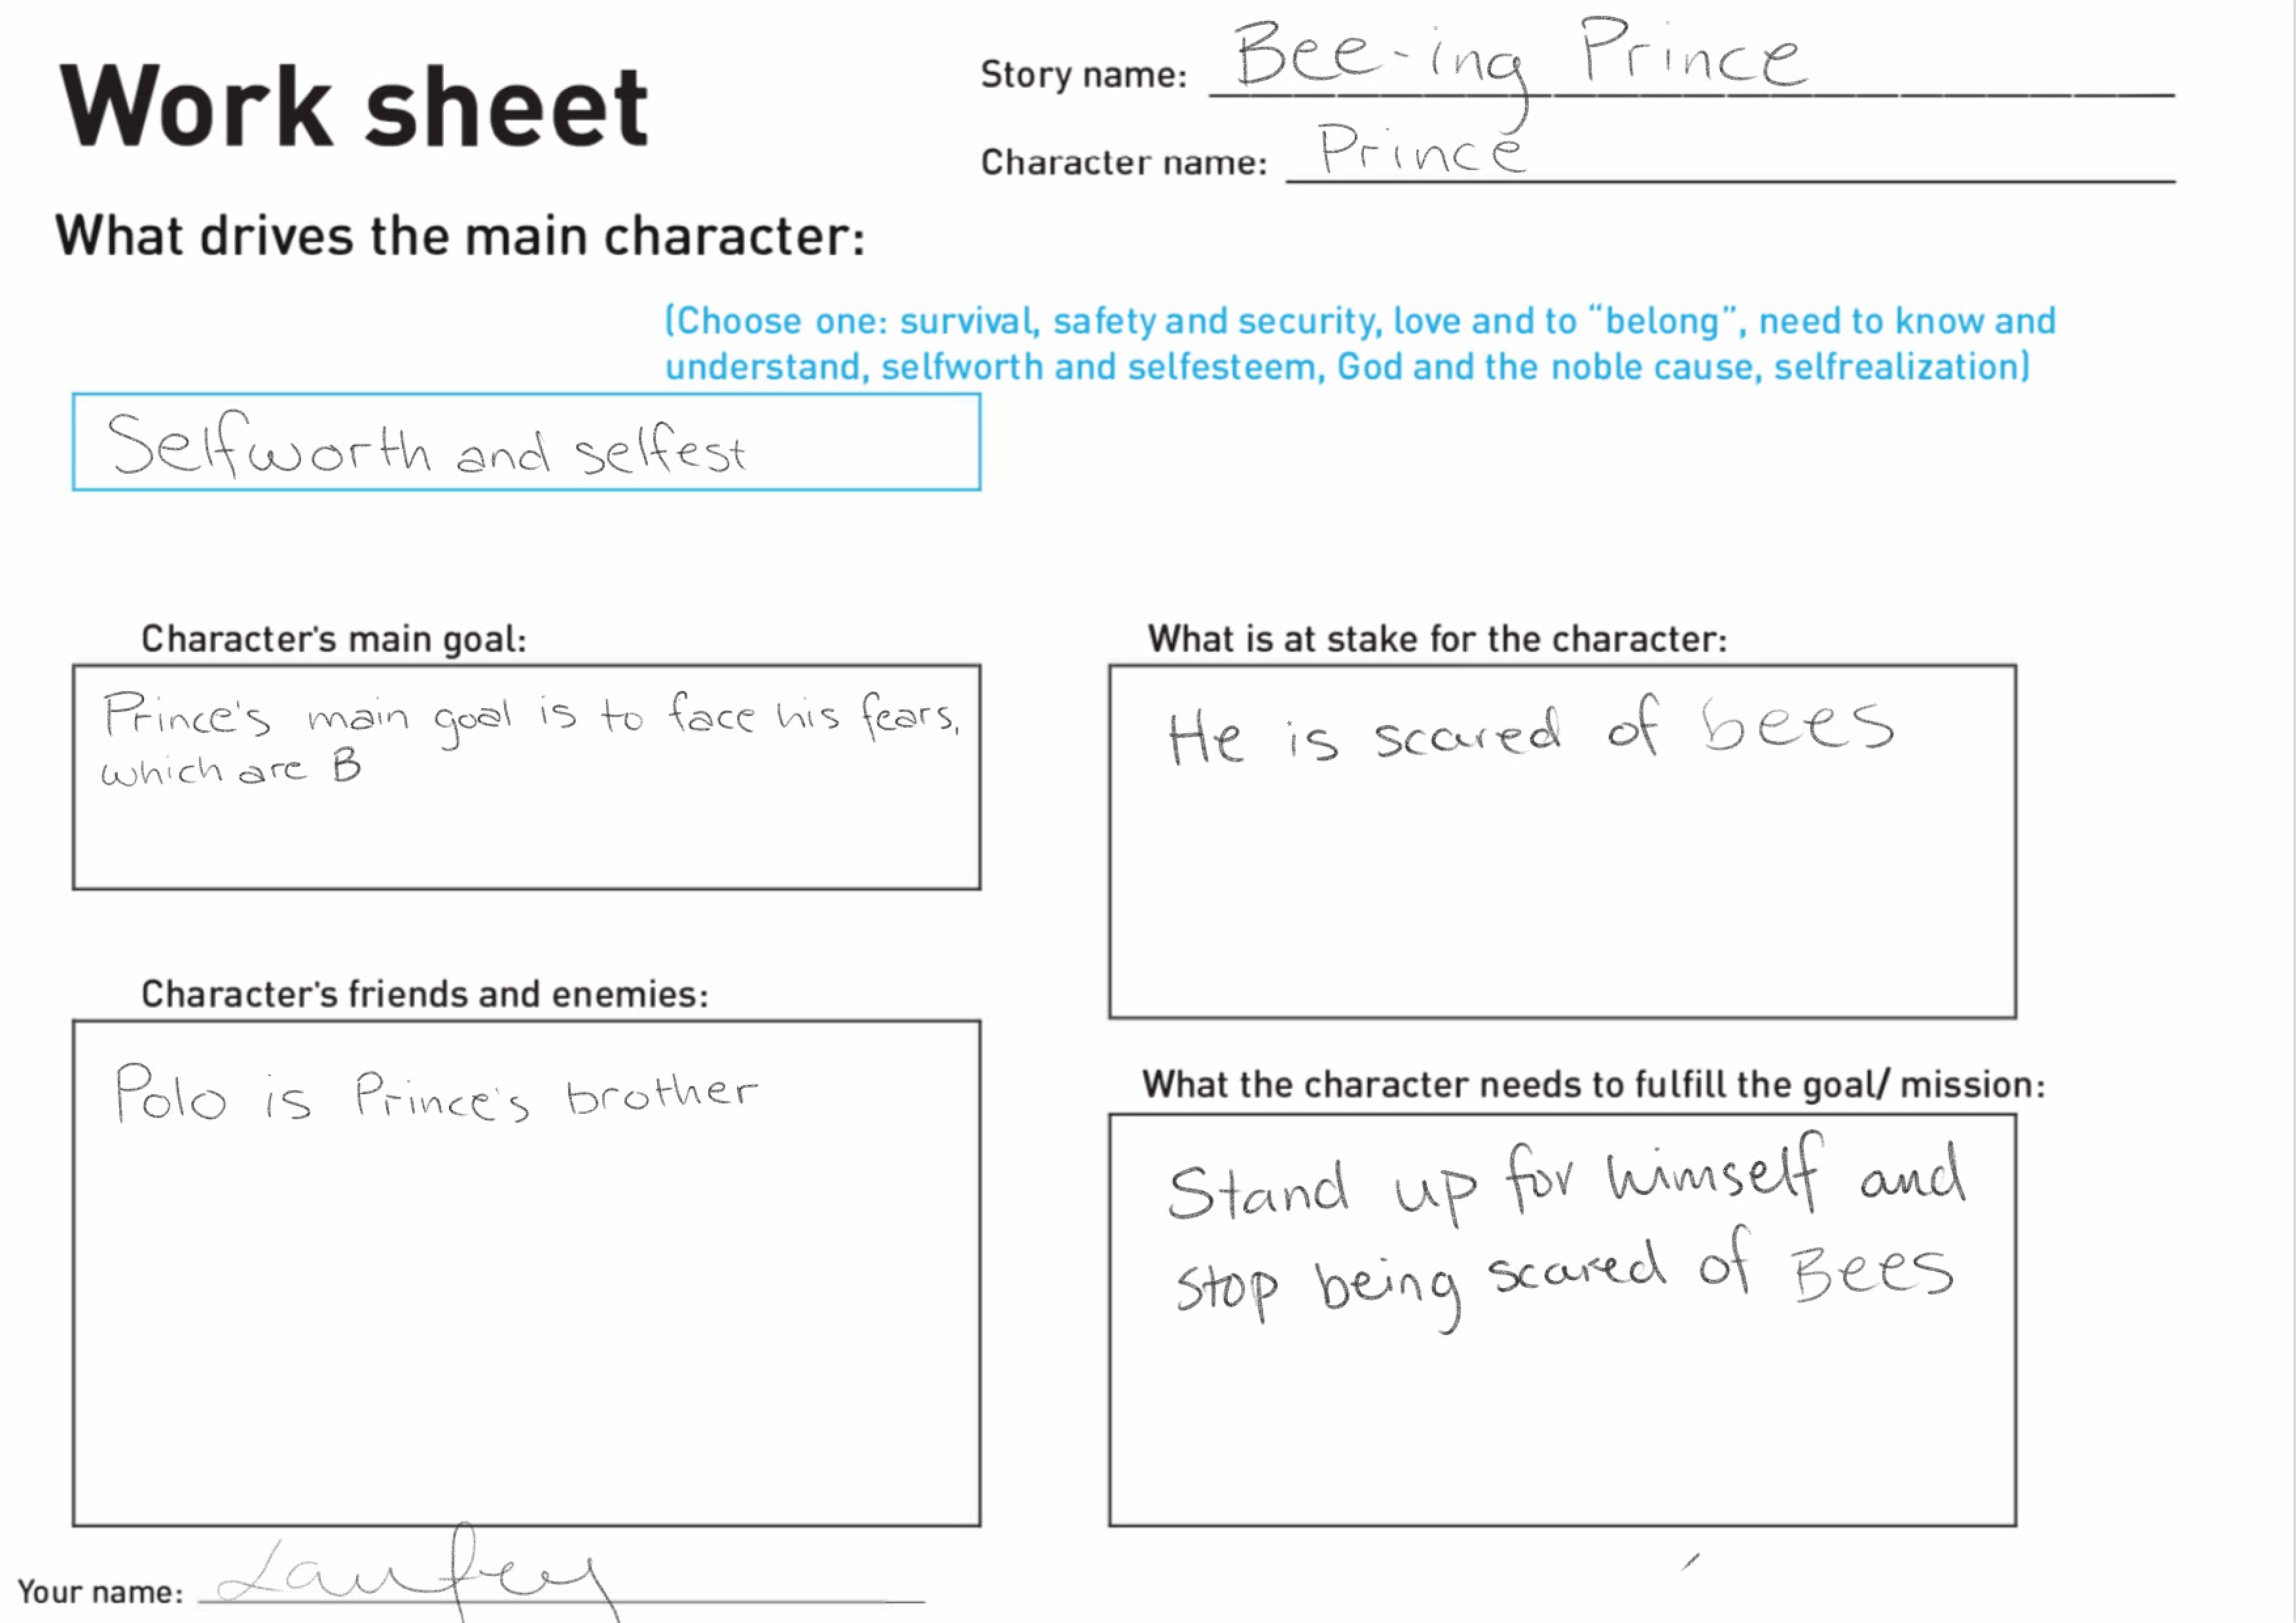 Work sheet
Story name: Bee-ing Prince
Character name: Prince
What drives the main character:
(Choose one: survival, safety and security, love and to “belong”, need to know and
understand, selfworth and selfesteem, God and the noble cause, selfrealization)
Selfworth and selfest
Character's main goal:
Prince's main goal is to face his fears,
which are B
What is at stake for the character:
He is scared of bees
Character's friends and enemies:
Polo is Prince's brother
What the character needs to fulfill the goal/ mission:
Stand up for himself and
stop being scared of Bees
Your name: Laufey